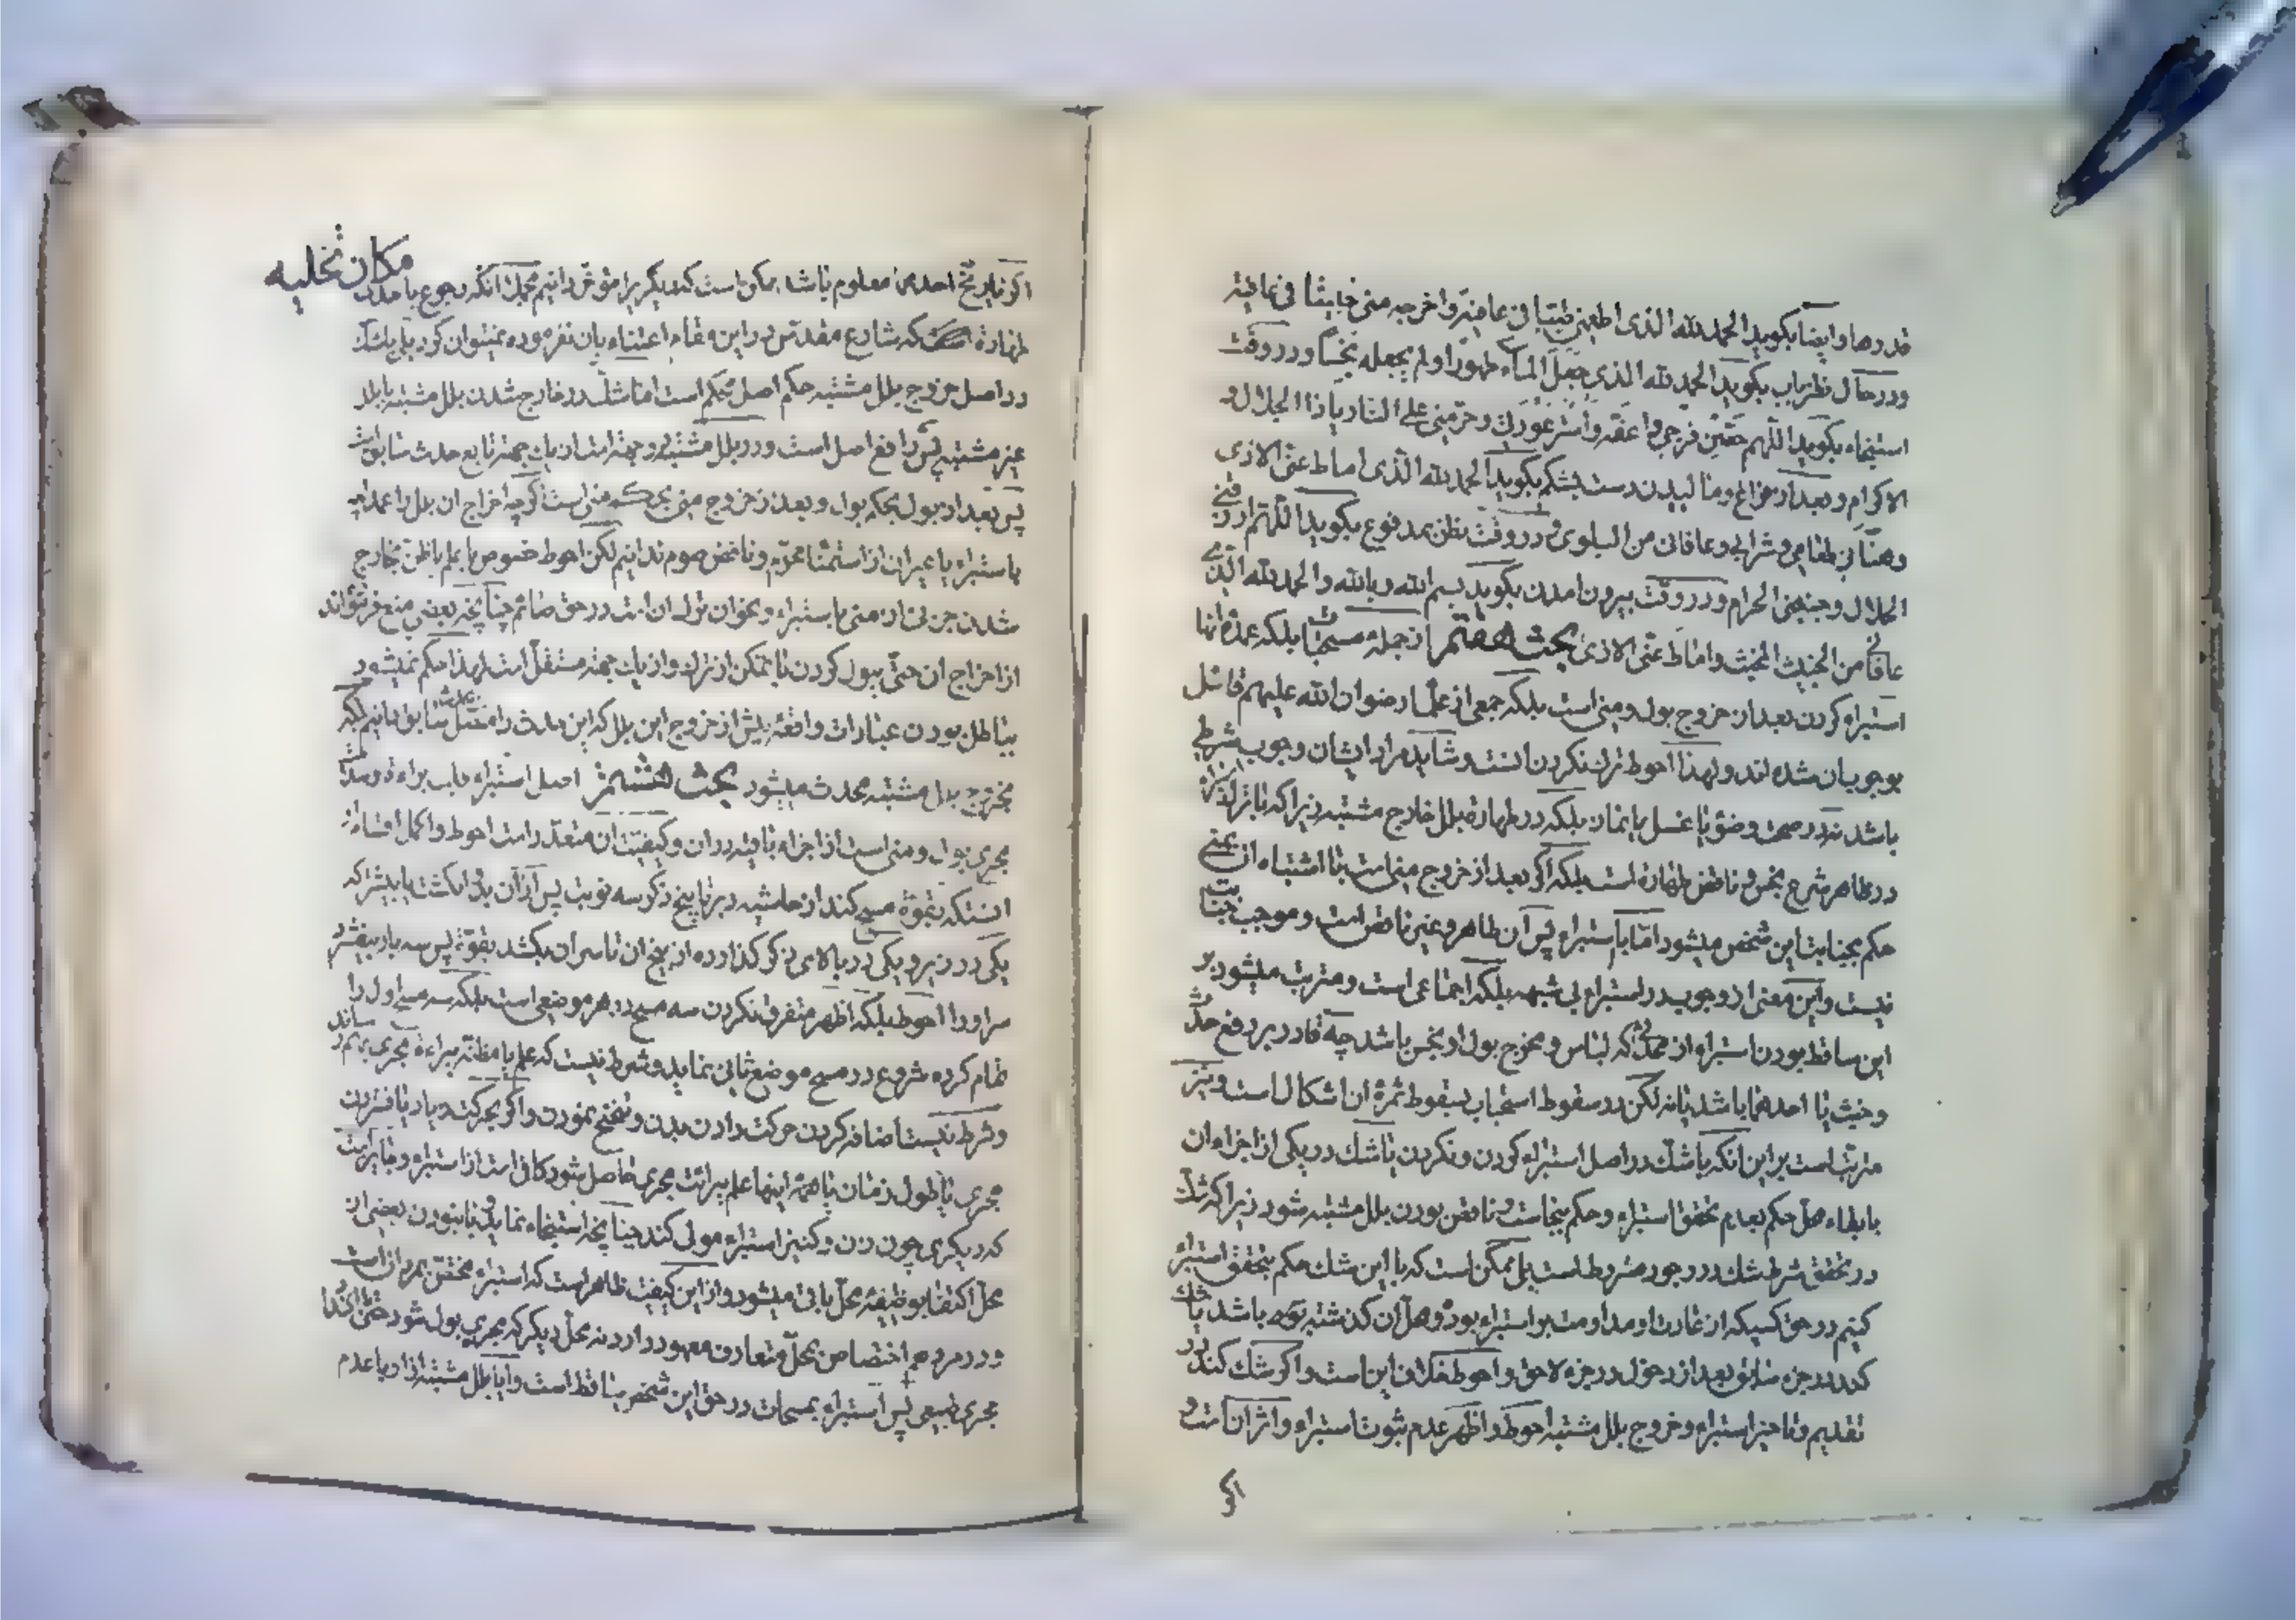 قدرها و ایضا بکوید الحمد لله الذی اطعمنی طیبا فی عافیة و اخرجه منی خبیثا فی عافیة
و در حال نظر باب بکوید الحمد لله الذی جعل الماء طهورا و لم یجعله نجسا و در وقت
استنجاء بکوید اللهم حصّن فرجی و اعفّه و استر عورتی و حرّمنی علی النار یا ذا الجلال و
الاکرام و بعد از فراغ و مالیدن دست بشکم بکوید الحمد لله الذی اماط عنی الاذی
و هنّأنی طعامی و شرابی و عافانی من البلوی و در وقت نظر بمدفوع بکوید اللهم ارزقنی
الحلال و جنبنی الحرام و در وقت بیرون امدن بکوید بسم الله و بالله و الحمد لله الذی
عافانی من الخبیث المخبث و اماط عنی الاذی بحث هفتم از جمله مستحبات بلکه عمده انها
استبراء کردن بعد از خروج بول و منی است بلکه جمعی از علماء رضوان الله علیهم قائل
بوجوب ان شده اند و لهذا احوط ترک نکردن انست و شاید مراد ایشان وجوب شرطی
باشد نه در صحت وضو یا غسل یا نماز بلکه در طهارة بلل خارج مشتبه زیرا که با ترک
در ظاهر شرع نجس و ناقض طهارة است بلکه اکر بعد از خروج منی است با اشتباه ان بمنی
حکم بجنابت این شخص میشود اما با استبراء پس ان طاهر و غیر ناقض است و موجب جنابت
نیست و این معنی از وجوب در استبراء بی شبهه بلکه اجماعی است و مترتب میشود بر
این ساقط بودن استبراء از کسی که لباس و مخرج بول او نجس باشد چه قادر بر رفع حدث
و خبث یا احدهما باشد یا نه لکن در سقوط استحباب بسقوط ثمرة ان اشکال است و نیز
مترتب است بر این انکه با شک در اصل استبراء کردن و نکردن یا شک در یکی از اجزاء ان
با بقاء محل حکم بعدم تحقق استبراء و حکم بنجاست و ناقض بودن بلل مشتبه شود زیرا که شک
در تحقق شرط شک در وجود مشروط است بلی ممکن است که با این شک حکم بتحقق استبراء
کنیم در حق کسیکه از عادت او مداومت بر استبراء بوده و محل ان کذشته بوده باشد یا شک
کند در جزء سابق بعد از دخول در جزء لاحق و احوط خلاف این است و اکر شک کند در
تقدیم و تاخیر استبراء و خروج بلل مشتبه احوط و اظهر عدم ثبوت استبراء و اثر ان است و
اکر
مکان تخلیه
اکر تاریخ احدی معلوم باشد ممکن است که دیکر را مؤخر دانیم بجهت انکه رجوع باحد
طهارة است که شارع مقدس در این مقام اعتناء بان نفرموده نمیتوان کرد بلی با شک
در اصل خروج بلل مشتبه حکم اصل محکم است اما شک در خارج شدن بلل مشتبه یا بلل
غیر مشتبه پس رافع اصل است و در بلل مشتبه
پس بعد از بول بحکم بول و بعد از خروج منی بحکم منی است اکرچه اخراج ان بلل را عمدا
باستبراء یا غیر ان از استمناء محرم و ناقض صوم ندانیم لکن احوط خصوص با علم یا ظن بخارج
شدن جزئی از منی باستبراء و بخو ان ترک ان است در حق صائم چنانچه بعضی منع فرموده اند
از اخراج ان حتی ببول کردن با تمکن از ترک و از یک جهة مستقل است لهذا حکم نمیشود
بباطل بودن عبادات واقعه پیش از خروج این بلل که این حدث را متصل بسابق دانیم بلکه
بخروج بلل مشتبه محدث میشود بحث هشتم اصل استبراء
مجری بول و منی است از اجزاء باقیه در ان و کیفیت ان متعدد است احوط و اکمل اقسام ان
انستکه بقوة مسح کند از حاشیه دبر تا بیخ ذکر سه نوبت پس از ان
یکی در زیر و یکی در بالای ذکر کذارده از بیخ ان تا سر ان بکشد بقوة پس سه بار بیفشرد
سر او را احوط بلکه اظهر متفرق نکردن سه مسح در هر موضعی است بلکه سه مسح اول را
تمام کرده شروع در مسح موضع ثانی نماید و شرط نیست که علم یا مظنه ببراءة مجری بهم رساند
و شرط نیست اضافه کردن حرکت دادن بدن و تنحنح نمودن و اکر بحرکت زیاد یا فشردن
مجری یا طول زمان یا همه اینها علم ببرائت مجری حاصل شود کافی است از استبراء و جایز است
که دیکری چون زن و کنیز استبراء مولی کند چنانچه استنجاء نماید و با نبودن بعضی از
محل اکتفا بوظیفه محل باقی میشود و از این کیفیت ظاهر است که استبراء مختص بمردان است
و در مرد هم اختصاص بمحل متعارف معهود دارد نه محل دیکر که مجری بول شود حتی
مجری طبیعی پس استبراء بمسحات در حق این شخص ساقط است و ایا بلل مشتبه از او با عدم